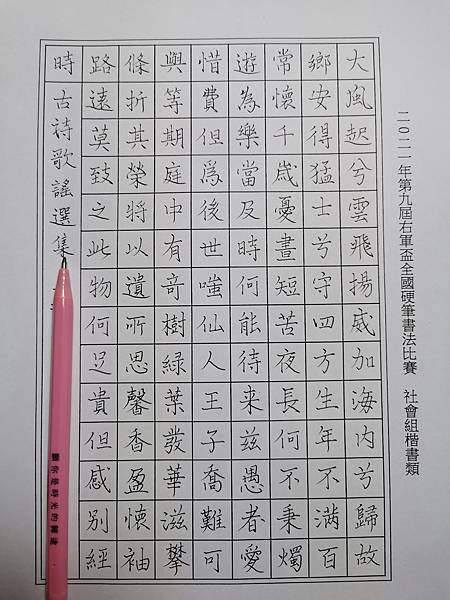 二〇二一年第九屆右軍盃全國硬筆書法比賽 社會組楷書類
大風起兮雲飛揚威加海內兮歸故
鄉安得猛士兮守四方生年不滿百
常懷千歲憂晝短苦夜長何不秉燭
遊為樂當及時何能待来茲愚者愛
惜費但為後世嗤仙人王子喬難可
與等期庭中有奇樹綠葉發華滋攀
條折其榮將以遺所思馨香盈懷袖
路遠莫致之此物何足貴但感別經
時 古詩歌謠選集
你是時光的